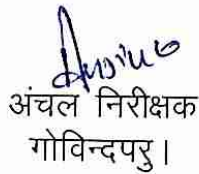 अंचल निरीक्षक
गोविन्दपरु।